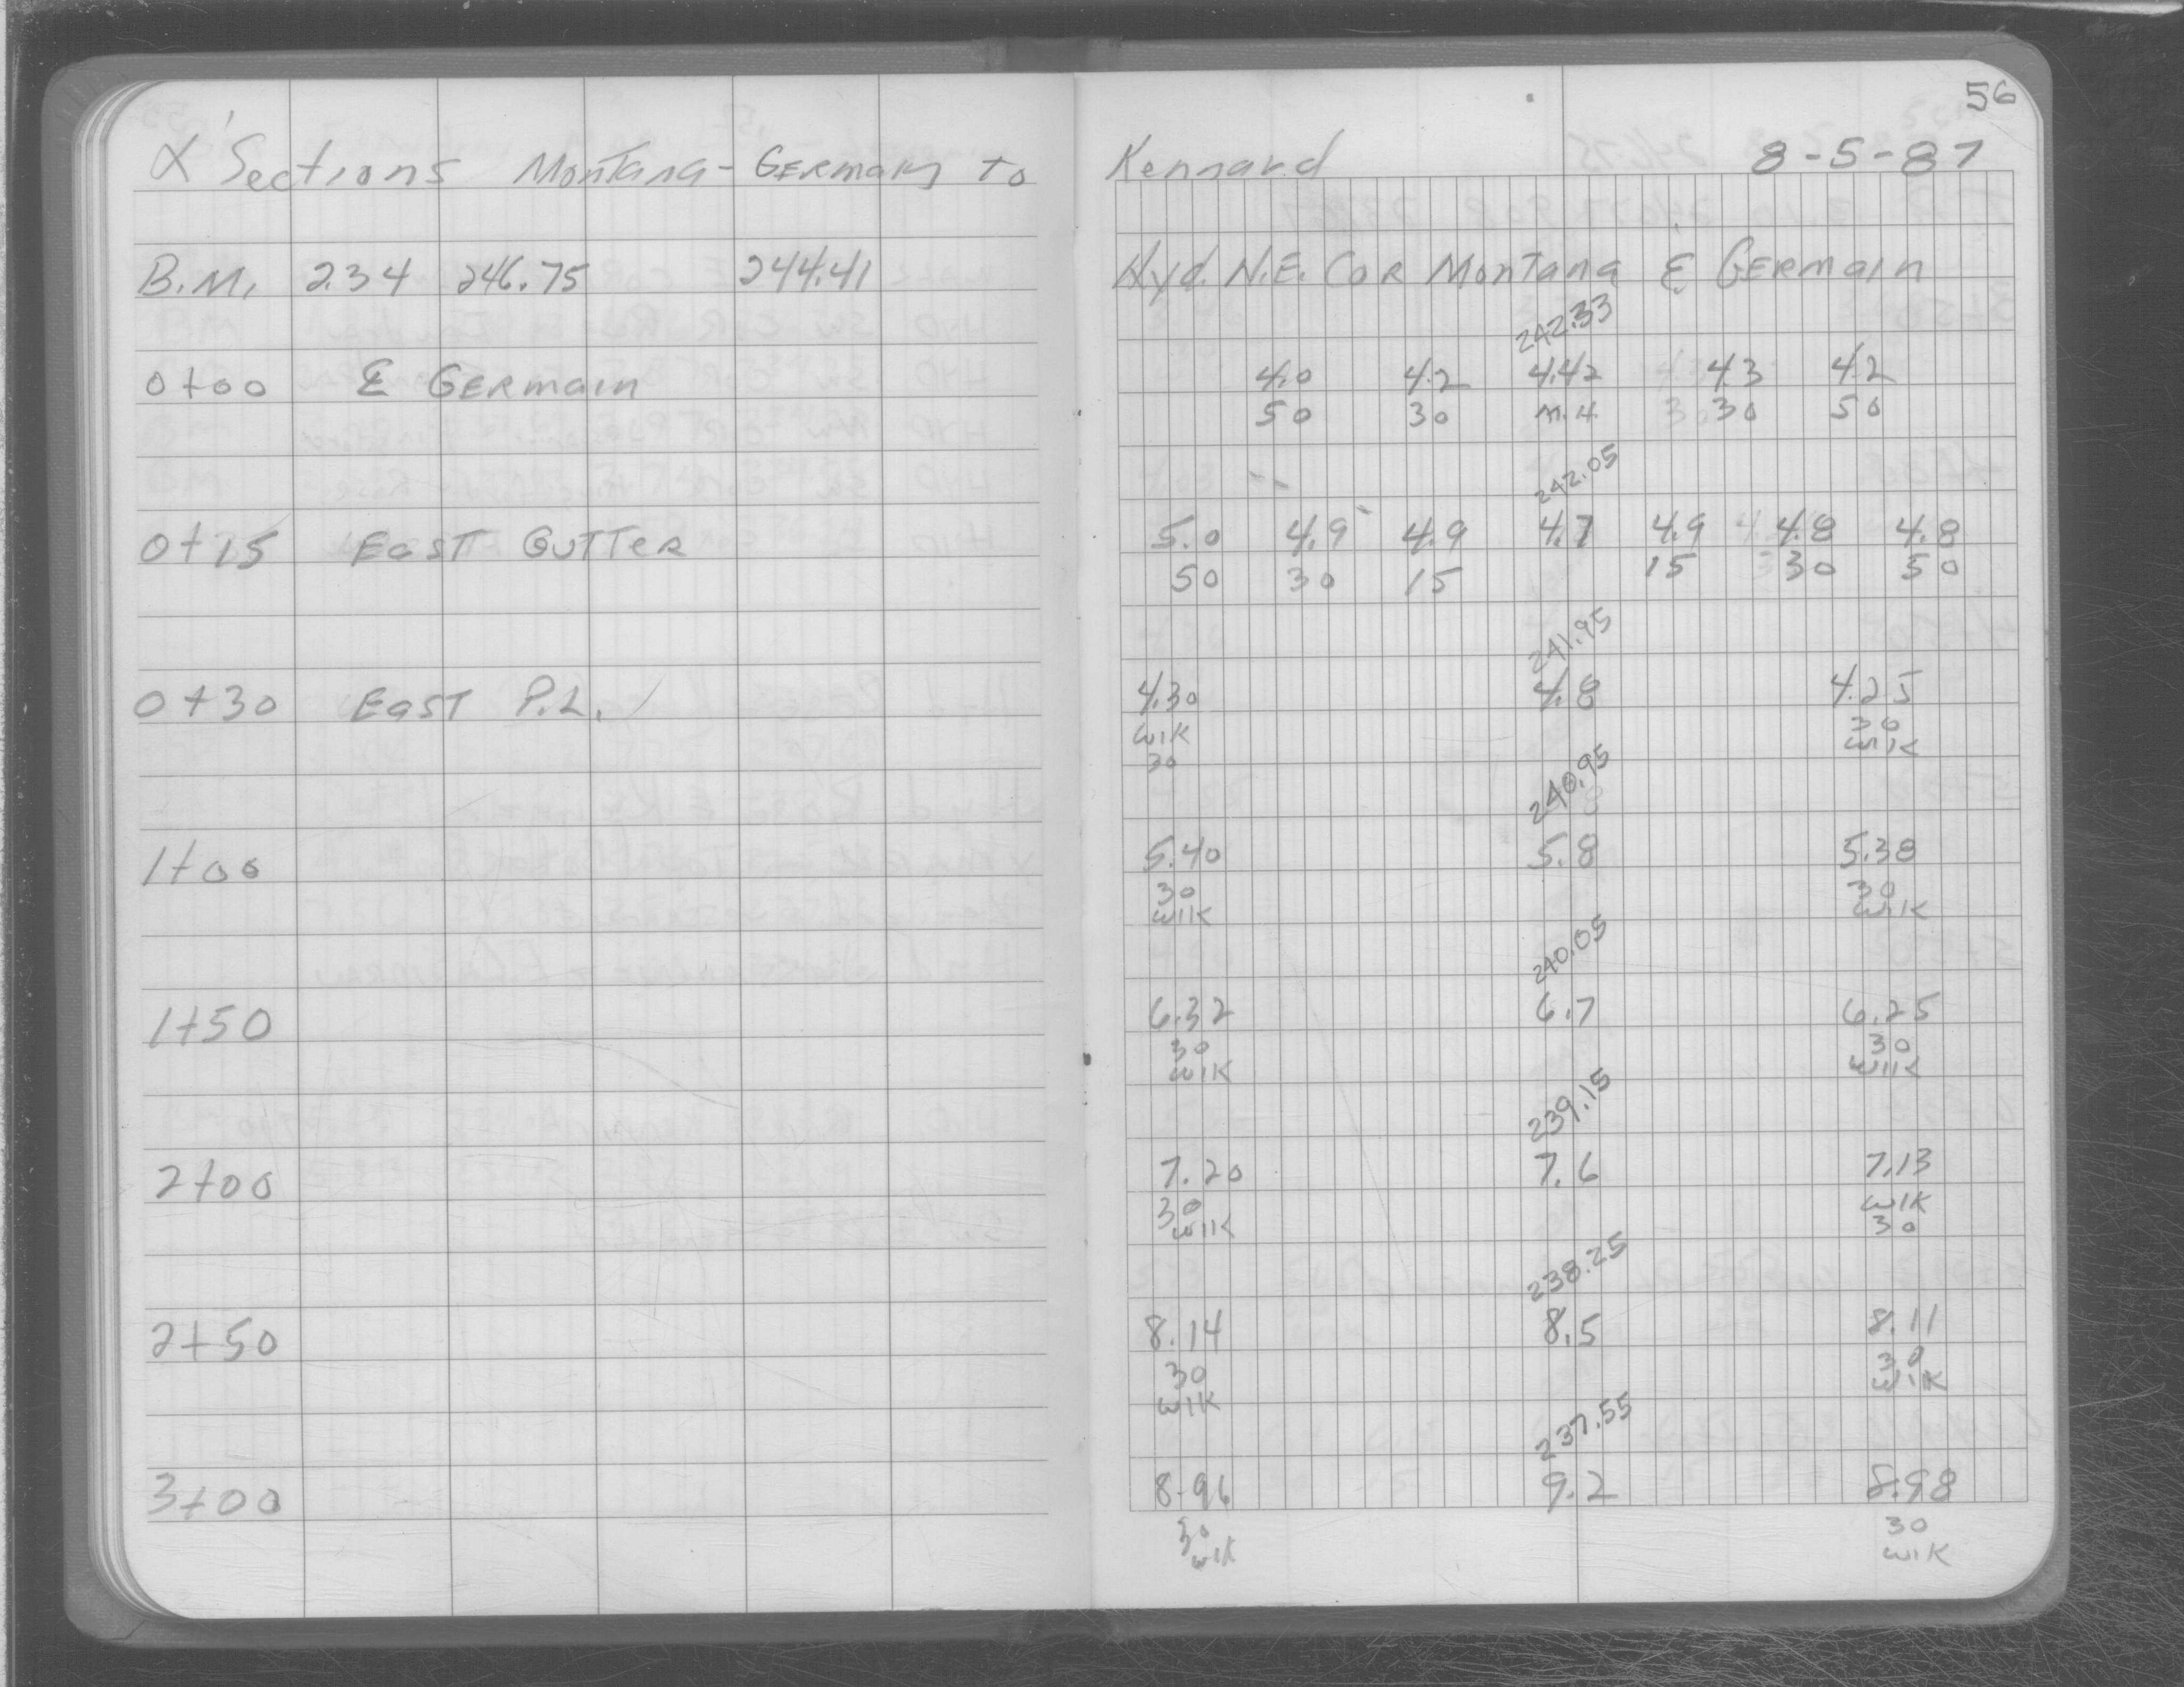 56
X' Sections Montana - Germain to Kennard 8-5-87
B.M. 2.34 246.75 244.41 Hyd. N.E. Cor Montana & Germain
242.33
0+00 & Germain 4.0 4.2 4.42 4.3 4.2
50 30 M.H. 30 50
242.05
0+15 East Gutter 5.0 4.9 4.9 4.7 4.9 4.8 4.8
50 30 15 15 30 50
241.95
0+30 East P.L. 4.30 4.8 4.25
wlk 30
30 wlk
240.95
1+00 5.40 5.8 5.38
30 30
wlk wlk
240.05
1+50 6.32 6.7 6.25
30 30
wlk wlk
239.15
2+00 7.20 7.6 7.13
30 wlk
wlk 30
238.25
2+50 8.14 8.5 8.11
30 30
wlk wlk
237.55
3+00 8.96 9.2 8.98
30 30
wlk wlk